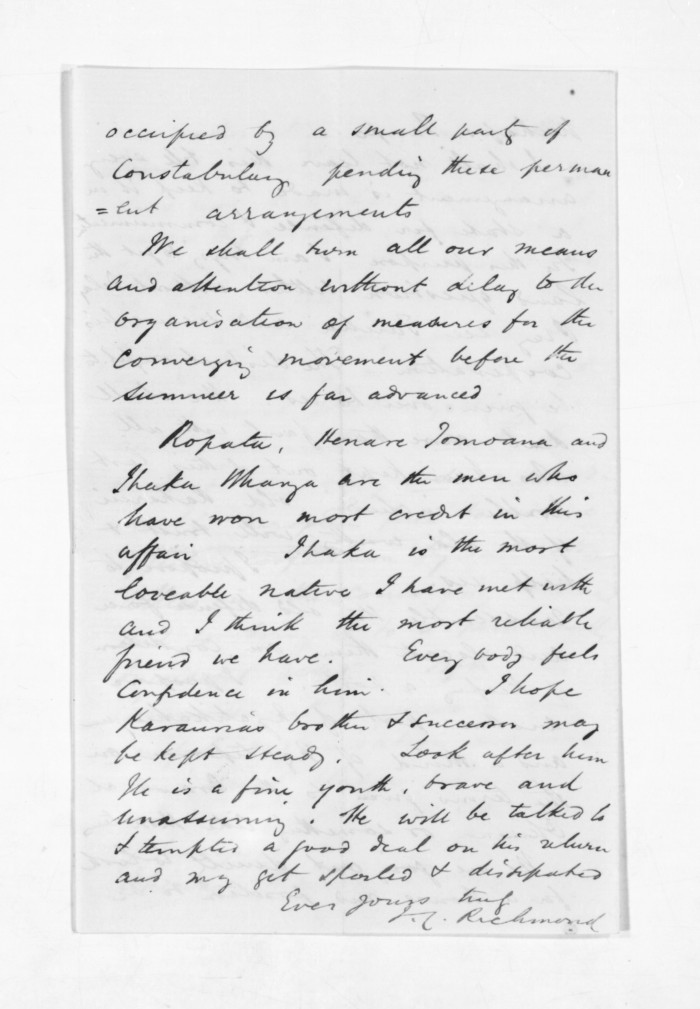 occupied by a small party of
Constabulary pending these perman
=ent arrangements
We shall turn all our means
and attention without delay to the
organisation of measures for the
converging movement before the
summer is far advanced
Ropata, Henare Tomoana and
Ihaka Whanga are the men who
have won most credit in this
affair Ihaka is the most
loveable native I have met with
and I think the most reliable
friend we have. Every body feels
Confidence in him. I hope
Karaurias brother & successor may
be kept steady. Look after him
He is a fine youth, brave and
unassuming. He will be talked to
& tempted a good deal on his return
and may get spoiled & dissipated
Ever yours truly
J.C. Richmond